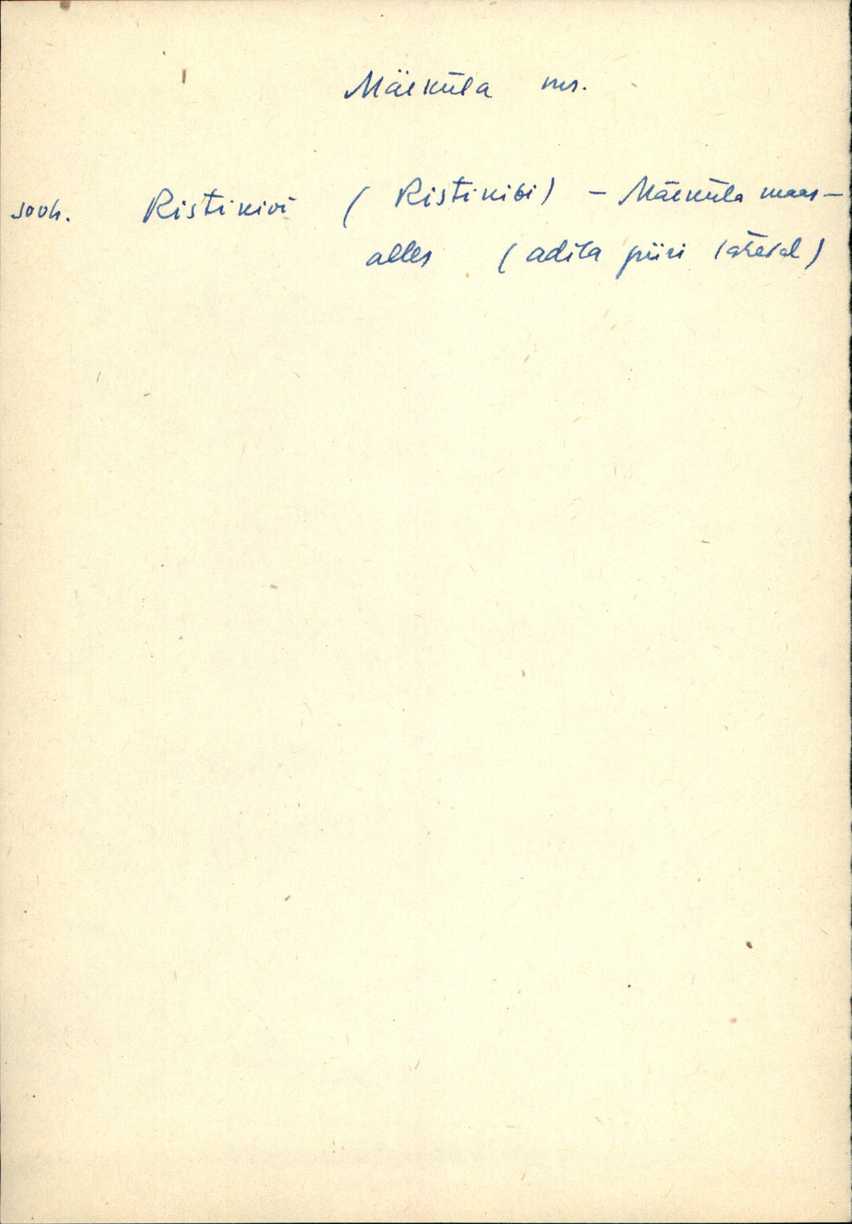 Mäeküla ms.
sooh. Ristikivi ( Ristikibi) – Mäeküla maas-
alles ( adila piiri lähedal )